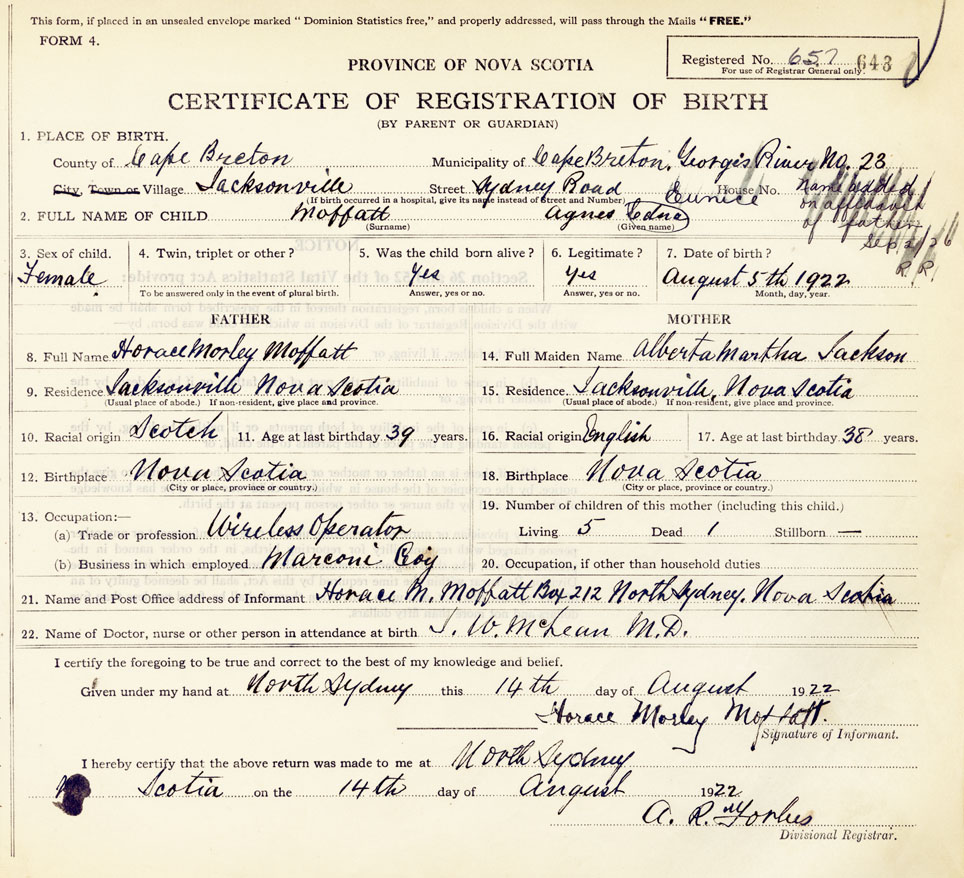 This form, if placed in an unsealed envelope marked "Dominion Statistics free," and properly addressed, will pass through the Mails "FREE."
FORM 4.
Registered No. 657 643
For use of Registrar General only.
PROVINCE OF NOVA SCOTIA
CERTIFICATE OF REGISTRATION OF BIRTH
(BY PARENT OR GUARDIAN)
1. PLACE OF BIRTH.
County of Cape Breton Municipality of Cape Breton, Georges River No. 23
City, Town or Village Jacksonville Street Sydney Road House No.
(If birth occurred in a hospital, give its name instead of Street and Number)
Eunice
name added
on affidavit
of father
Sep 2/26
R. R.
2. FULL NAME OF CHILD Moffatt Agnes Edna
(Surname) (Given name)
3. Sex of child. 4. Twin, triplet or other? 5. Was the child born alive? 6. Legitimate? 7. Date of birth?
Female Yes Yes August 5th 1922
To be answered only in the event of plural birth. Answer, yes or no. Answer, yes or no. Month, day, year.
FATHER MOTHER
8. Full Name Horace Morley Moffatt 14. Full Maiden Name Alberta Martha Jackson
9. Residence Jacksonville Nova Scotia 15. Residence Jacksonville, Nova Scotia
(Usual place of abode.) If non-resident, give place and province. (Usual place of abode.) If non-resident, give place and province.
10. Racial origin Scotch 11. Age at last birthday 39 years. 16. Racial origin English 17. Age at last birthday 38 years.
12. Birthplace Nova Scotia 18. Birthplace Nova Scotia
(City or place, province or country.) (City or place, province or country.)
13. Occupation:— 19. Number of children of this mother (including this child.)
(a) Trade or profession Wireless Operator Living 5 Dead 1 Stillborn —
(b) Business in which employed Marconi Coy 20. Occupation, if other than household duties
21. Name and Post Office address of Informant Horace M. Moffatt Box 212 North Sydney. Nova Scotia
22. Name of Doctor, nurse or other person in attendance at birth J. W. McLean M.D.
I certify the foregoing to be true and correct to the best of my knowledge and belief.
Given under my hand at North Sydney this 14th day of August 1922
Horace Morley Moffatt.
Signature of Informant.
I hereby certify that the above return was made to me at North Sydney
Scotia on the 14th day of August 1922
A. R. Forbes
Divisional Registrar.